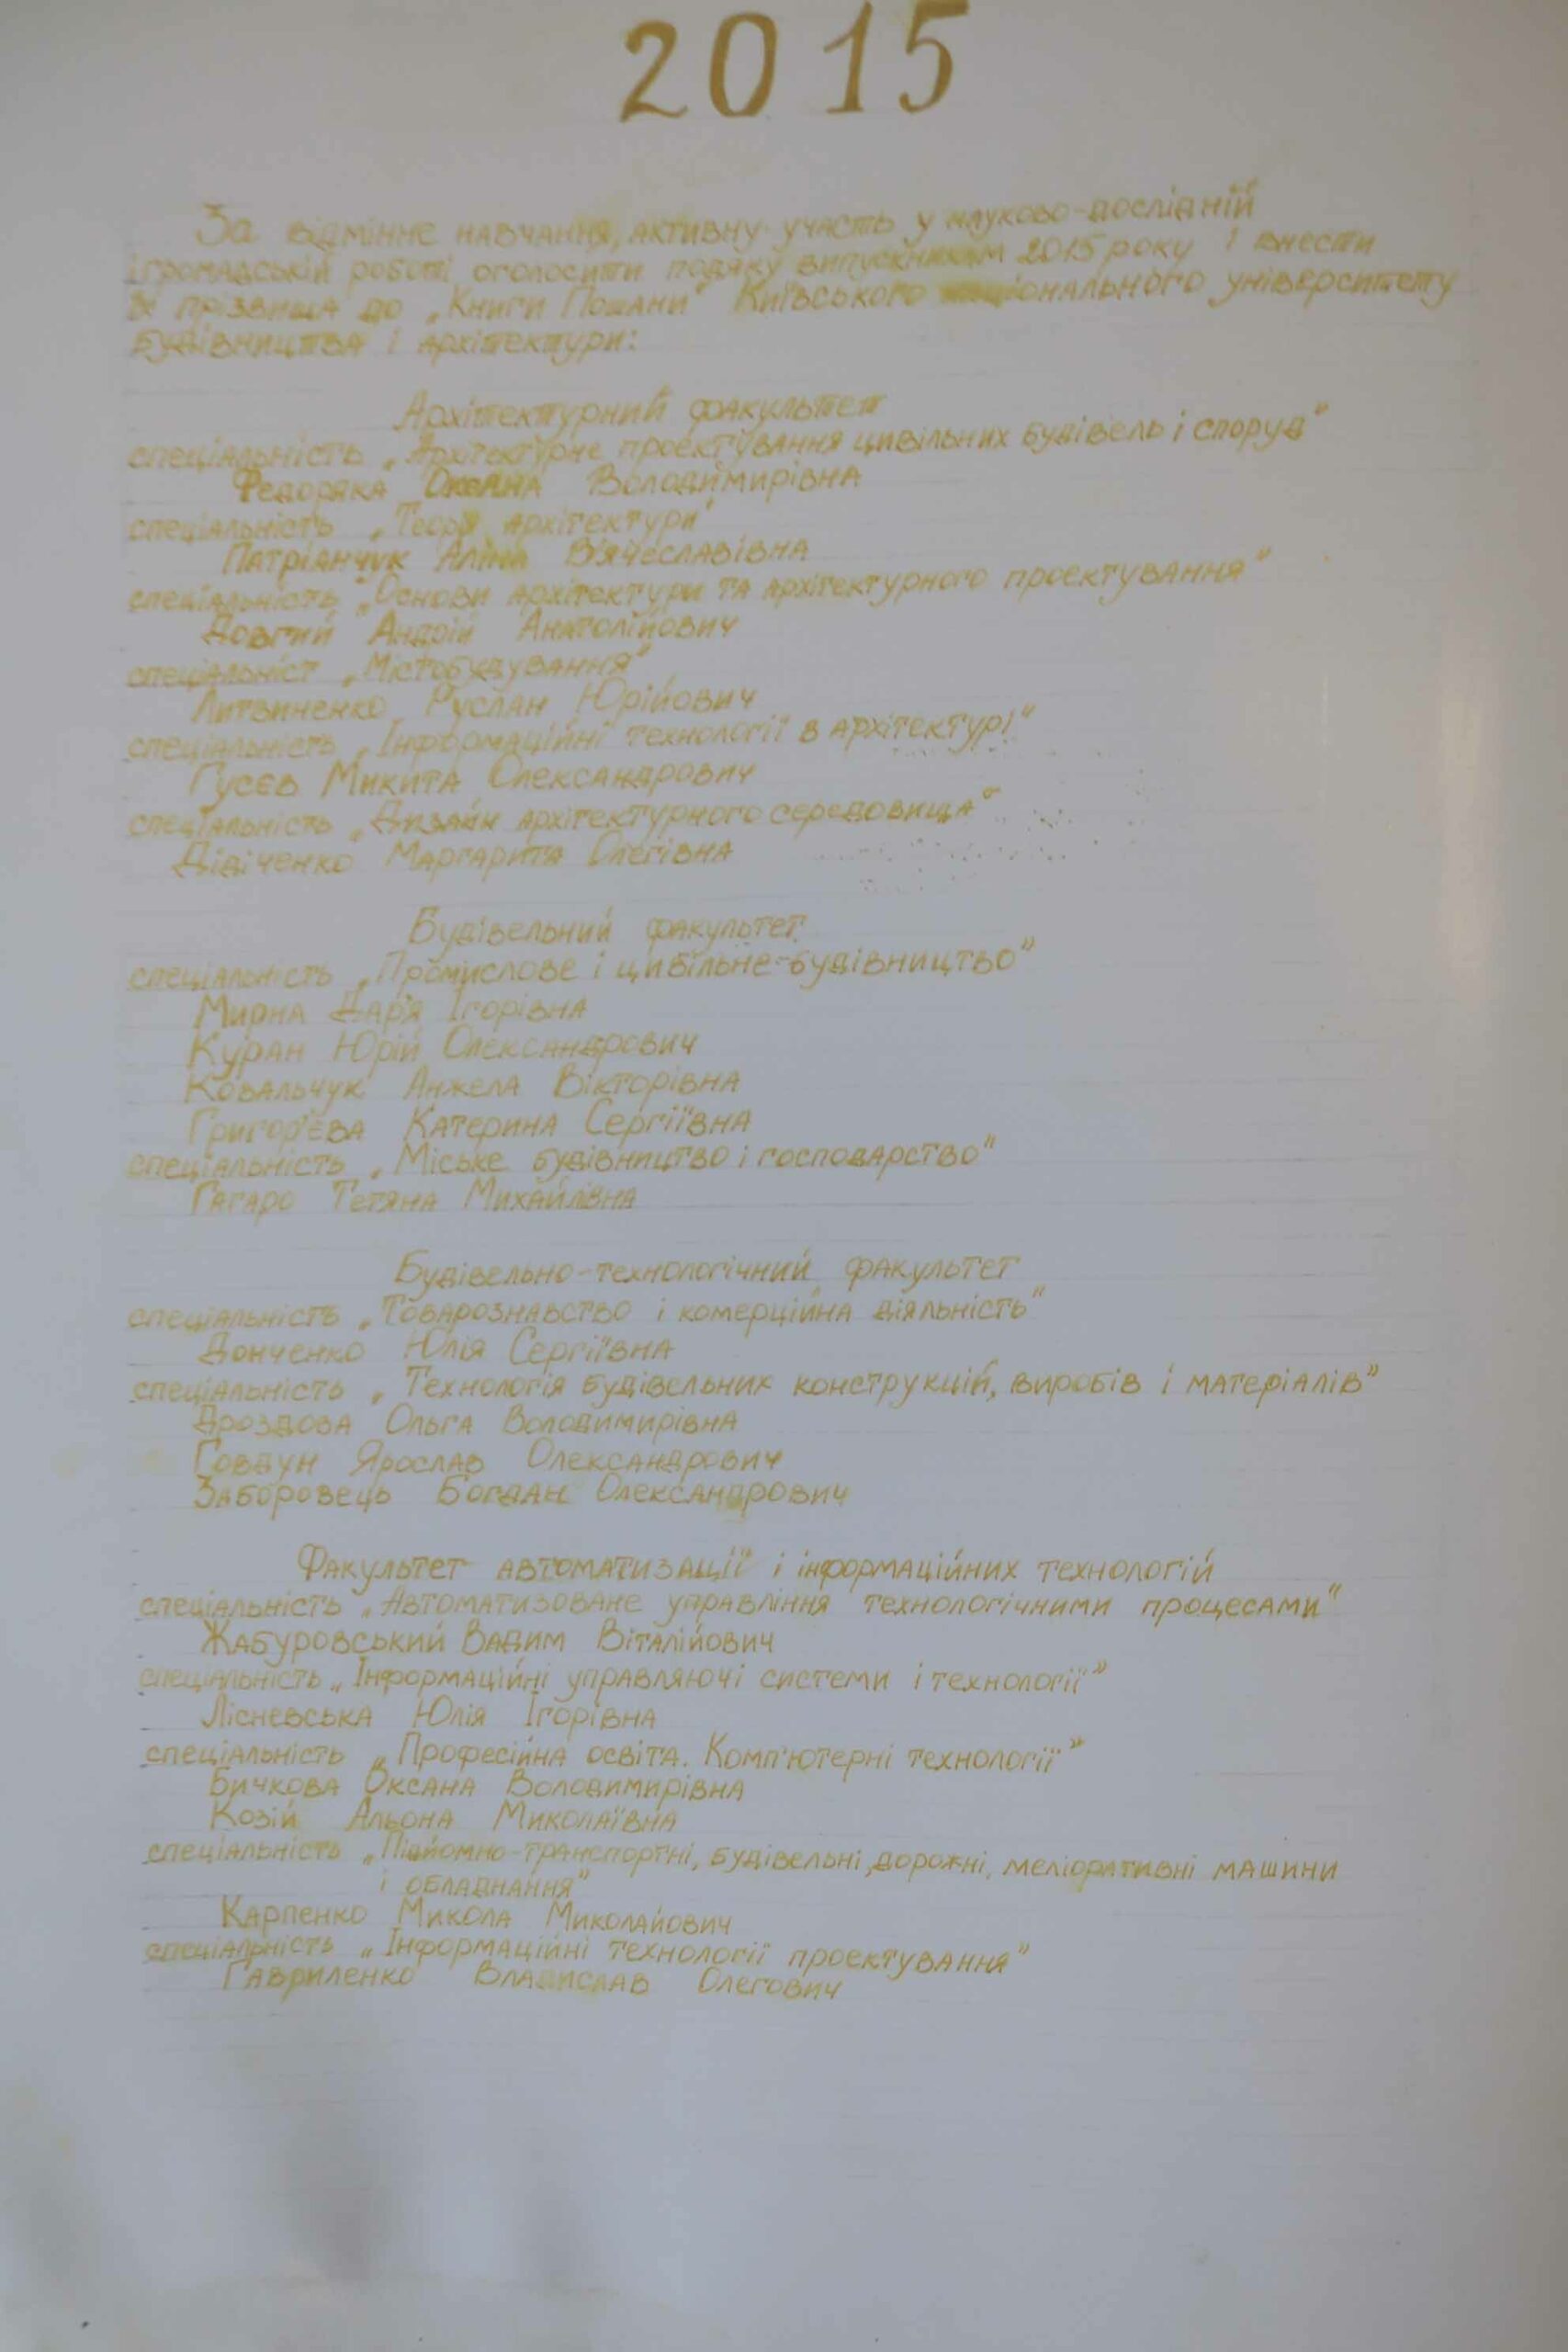 2015
За відмінне навчання, активну участь у науково-дослідній
і громадській роботі оголосити подяку випускникам 2015 року і внести
їх прізвища до „Книги Пошани" Київського національного університету
будівництва і архітектури:
Архітектурний факультет
спеціальність „Архітектурне проектування цивільних будівель і споруд"
Федоряка Оксана Володимирівна
спеціальність „Теорія архітектури"
Патріанчук Аліна В'ячеславівна
спеціальність „Основи архітектури та архітектурного проектування"
Довгий Андрій Анатолійович
спеціальніст „Містобудування"
Литвиненко Руслан Юрійович
спеціальність „Інформаційні технології в архітектурі"
Гусєв Микита Олександрович
спеціальність „Дизайн архітектурного середовища"
Дідіченко Маргарита Олегівна
Будівельний факультет
спеціальність „Промислове і цивільне-будівництво"
Мирна Дар'я Ігорівна
Куран Юрій Олександрович
Ковальчук Анжела Вікторівна
Григор'єва Катерина Сергіївна
спеціальність „Міське будівництво і господарство"
Гагаро Тетяна Михайлівна
Будівельно-технологічний факультет
спеціальність „Товарознавство і комерційна діяльність"
Донченко Юлія Сергіївна
спеціальність „Технологія будівельних конструкцій, виробів і матеріалів"
Дроздова Ольга Володимирівна
Говдун Ярослав Олександрович
Заборовець Богдан Олександрович
Факультет автоматизації і інформаційних технологій
спеціальність „Автоматизоване управління технологічними процесами"
Жабуровський Вадим Віталійович
спеціальність „Інформаційні управляючі системи і технології"
Лісневська Юлія Ігорівна
спеціальність „Професійна освіта. Комп'ютерні технології"
Бичкова Оксана Володимирівна
Козій Альона Миколаївна
спеціальність „Підйомно-транспортні, будівельні, дорожні, меліоративні машини
і обладнання"
Карпенко Микола Миколайович
спеціальність „Інформаційні технології проектування"
Гавриленко Владислав Олегович